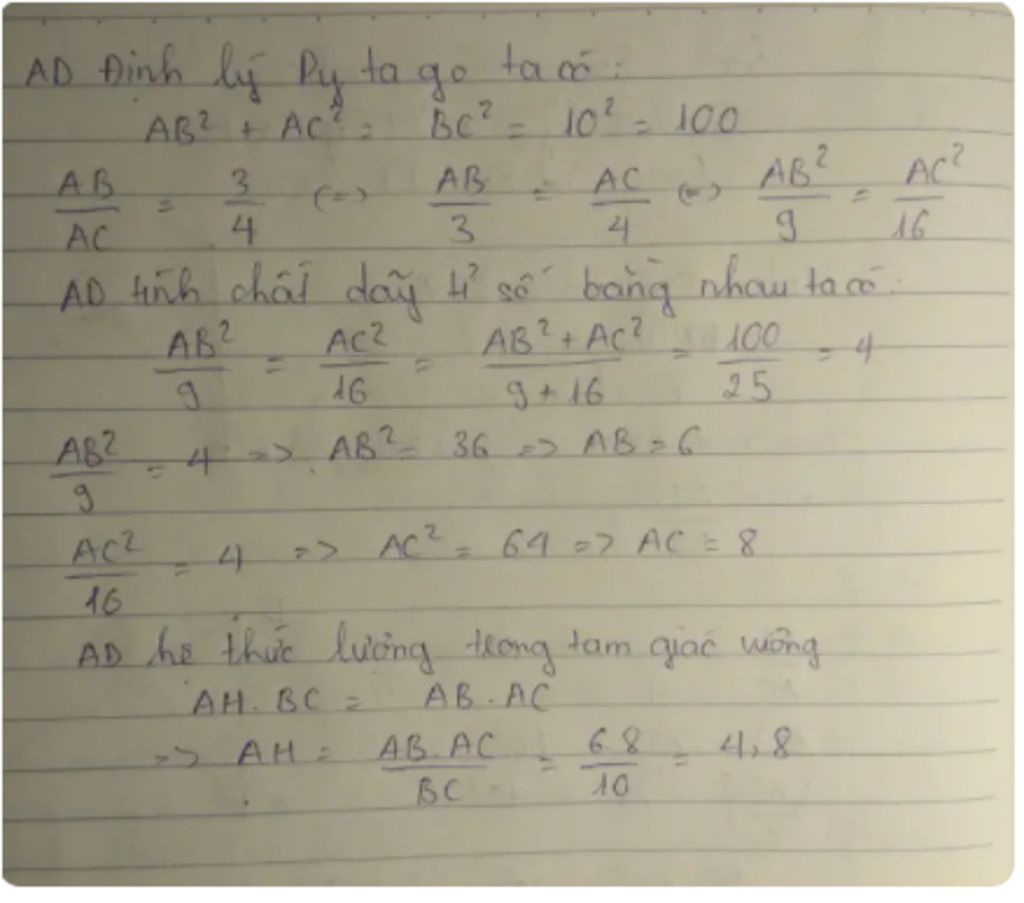 AD Định lý Py ta go ta có:
AB² + AC² = BC² = 10² = 100
AB/AC = 3/4 (=) AB/3 = AC/4 (=) AB²/9 = AC²/16
AD tính chất dãy tỉ số bằng nhau ta có:
AB²/9 = AC²/16 = AB² + AC²/9 + 16 = 100/25 = 4
AB²/9 = 4 => AB² = 36 => AB = 6
AC²/16 = 4 => AC² = 64 => AC = 8
AD hệ thức lượng trong tam giác vuông
AH . BC = AB . AC
=> AH = AB.AC/BC = 6.8/10 = 4,8